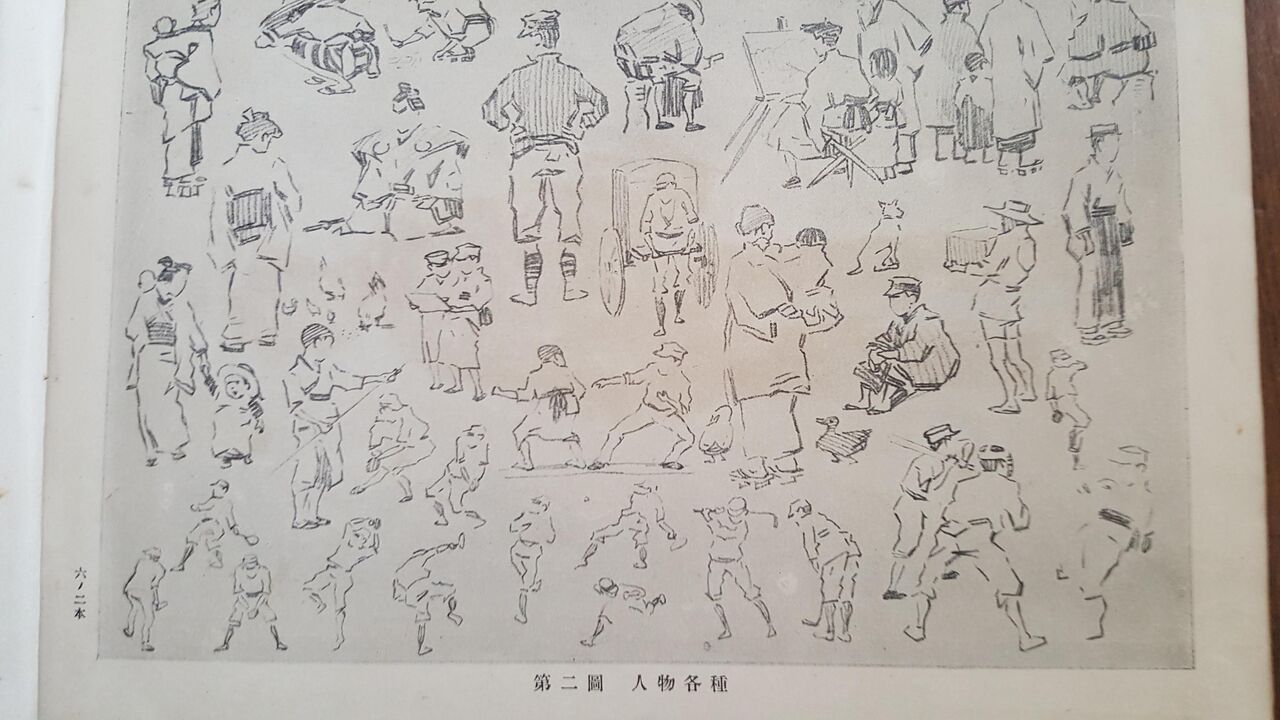 六ノ二本
第二圖 人物各種